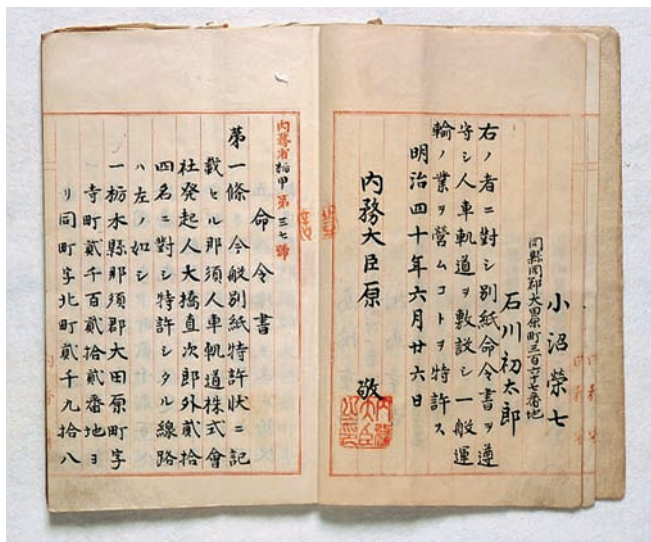 小沼榮七
同縣同郡大田原町三百六十七番地
石川初太郎
右ノ者ニ對シ別紙命令書ヲ遵
守シ人車軌道ヲ敷設シ一般運
輸ノ業ヲ營ムコトヲ特許ス
明治四十年六月廿六日
内務大臣原 敬
内務大臣之印
内務省栃甲第三七號
命令書
第一條 今般別紙特許状ニ記
載セル那須人車軌道株式會
社発起人大橋直次郎外貳拾
四名ニ對シ特許シタル線路
ハ左ノ如シ
一栃木縣那須郡大田原町字
寺町貳千百貳拾貳番地ヨ
リ同町字北町貳千九拾八